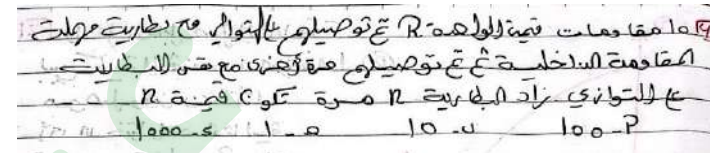 10 مقاومات قيمة الواحدة R تم توصيلهم ع التوالي مع بطارية مهملة
المقاومة الداخلية ثم تم توصيلهم مرة أخرى مع نفس البطارية
ع التوازي زاد البطارية n مرة تكون قيمة n
أ- 100 ب- 10 ج- 1 د- 1000